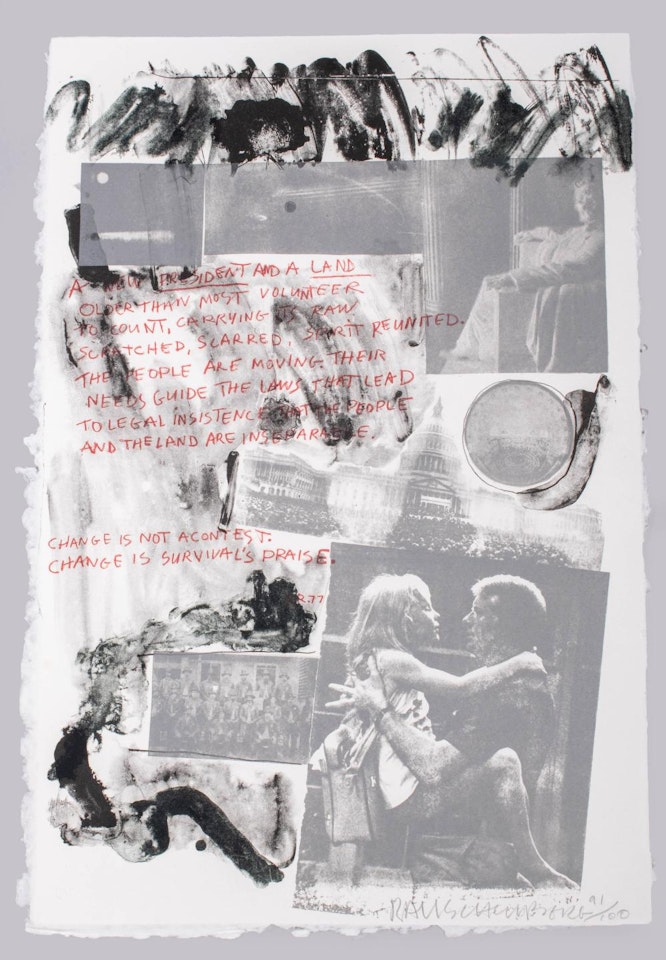 A NEW PRESIDENT AND A LAND
OLDER THAN MOST VOLUNTEER
TO COUNT, CARRYING ITS RAW
SCRATCHED, SCARRED, SPIRIT REUNITED.
THE PEOPLE ARE MOVING. THEIR
NEEDS GUIDE THE LAWS THAT LEAD
TO LEGAL INSISTENCE THAT THE PEOPLE
AND THE LAND ARE INSEPARABLE.
CHANGE IS NOT A CONTEST.
CHANGE IS SURVIVAL'S PRAISE.
R.77
RAUSCHENBERG 91/100